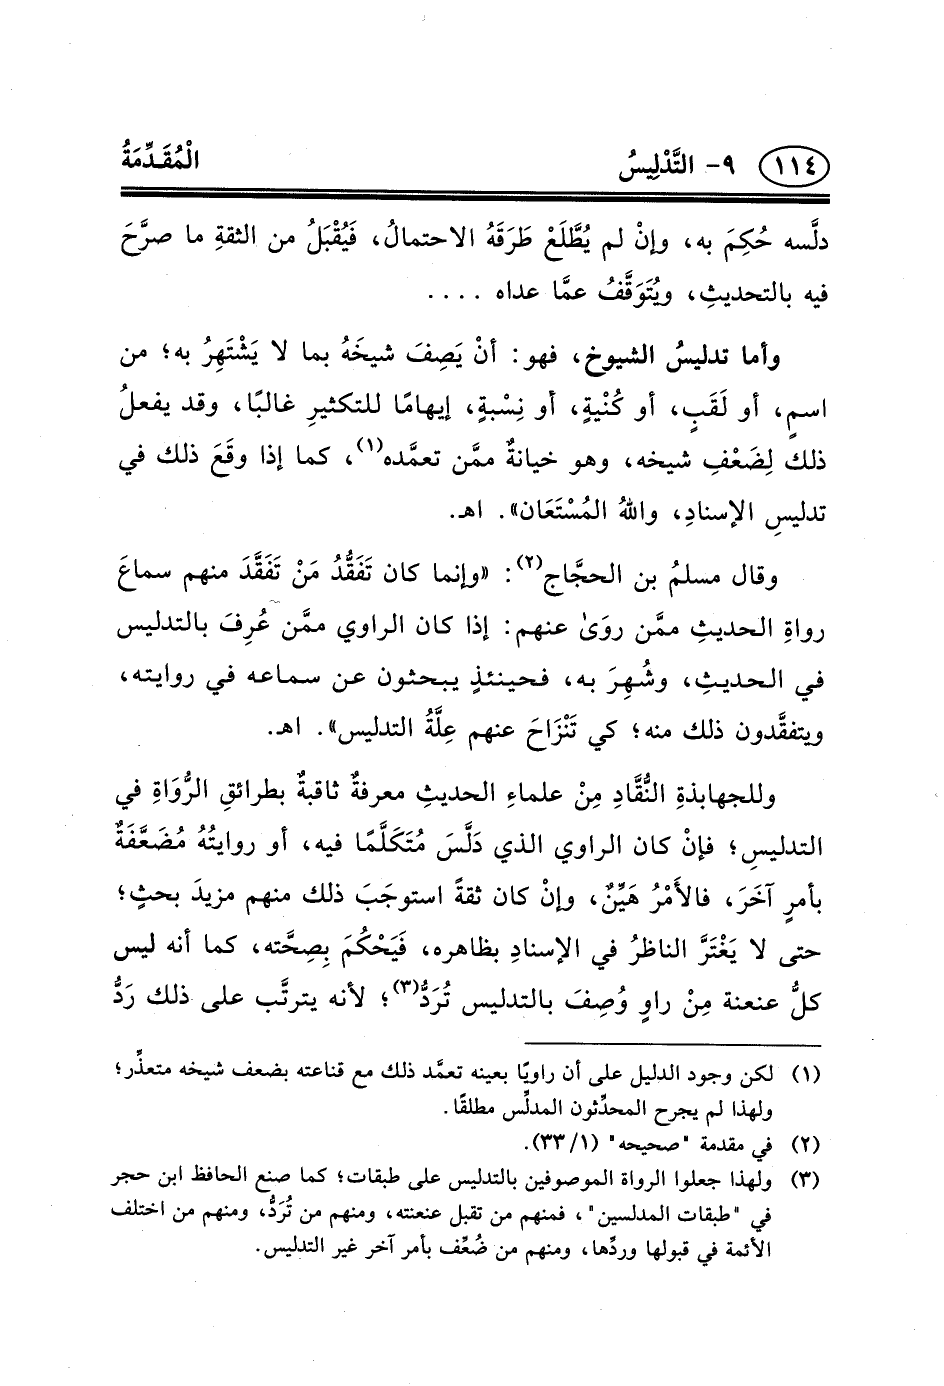 ١١٤ ٩- التَّدْلِيسُ الْمُقَدِّمَةُ
دلَّسه حُكِمَ به، وإنْ لم يُطَّلَعْ طَرَقَهُ الاحتمالُ، فَيُقْبَلُ من الثقةِ ما صرَّحَ
فيه بالتحديثِ، ويُتَوَقَّفُ عمَّا عداه ....
وأما تدليسُ الشيوخِ، فهو: أنْ يَصِفَ شيخَهُ بما لا يَشْتَهِرُ به؛ من
اسمٍ، أو لَقَبٍ، أو كُنْيةٍ، أو نِسْبةٍ، إيهامًا للتكثيرِ غالبًا، وقد يفعلُ
ذلك لِضَعْفِ شيخه، وهو خيانةٌ ممَّن تعمَّده(١)، كما إذا وقَعَ ذلك في
تدليسِ الإسنادِ، واللهُ المُسْتَعَان». اهـ.
وقال مسلمُ بن الحجَّاج(٢): «وإنما كان تَفَقُّدُ مَنْ تَفَقَّدَ منهم سماعَ
رواةِ الحديثِ ممَّن روَىٰ عنهم: إذا كان الراوي ممَّن عُرِفَ بالتدليس
في الحديثِ، وشُهِرَ به، فحينئذٍ يبحثون عن سماعه في روايته،
ويتفقَّدون ذلك منه؛ كي تَنْزَاحَ عنهم عِلَّةُ التدليس». اهـ.
وللجهابذةِ النُّقَّادِ مِنْ علماءِ الحديثِ معرفةٌ ثاقبةٌ بطرائقِ الرُّوَاةِ في
التدليسِ؛ فإنْ كان الراوي الذي دَلَّسَ مُتَكَلَّمًا فيه، أو روايتُهُ مُضَعَّفَةٌ
بأمرٍ آخَرَ، فالأَمْرُ هَيِّنٌ، وإنْ كان ثقةً استوجَبَ ذلك منهم مزيدَ بحثٍ؛
حتى لا يَغْتَرَّ الناظرُ في الإسنادِ بظاهره، فَيَحْكُمَ بِصِحَّته، كما أنه ليس
كلُّ عنعنة مِنْ راوٍ وُصِفَ بالتدليس تُرَدُّ(٣)؛ لأنه يترتَّب على ذلك رَدُّ
(١) لكن وجود الدليل على أن راويًا بعينه تعمَّد ذلك مع قناعته بضعف شيخه متعذِّر؛
ولهذا لم يجرح المحدِّثون المدلِّس مطلقًا.
(٢) في مقدمة "صحيحه" (١/ ٣٣).
(٣) ولهذا جعلوا الرواة الموصوفين بالتدليس على طبقات؛ كما صنع الحافظ ابن حجر
في "طبقات المدلسين"، فمنهم من تقبل عنعنته، ومنهم من تُرَدُّ، ومنهم من اختلف
الأئمة في قبولها وردِّها، ومنهم من ضُعِّف بأمر آخر غير التدليس.